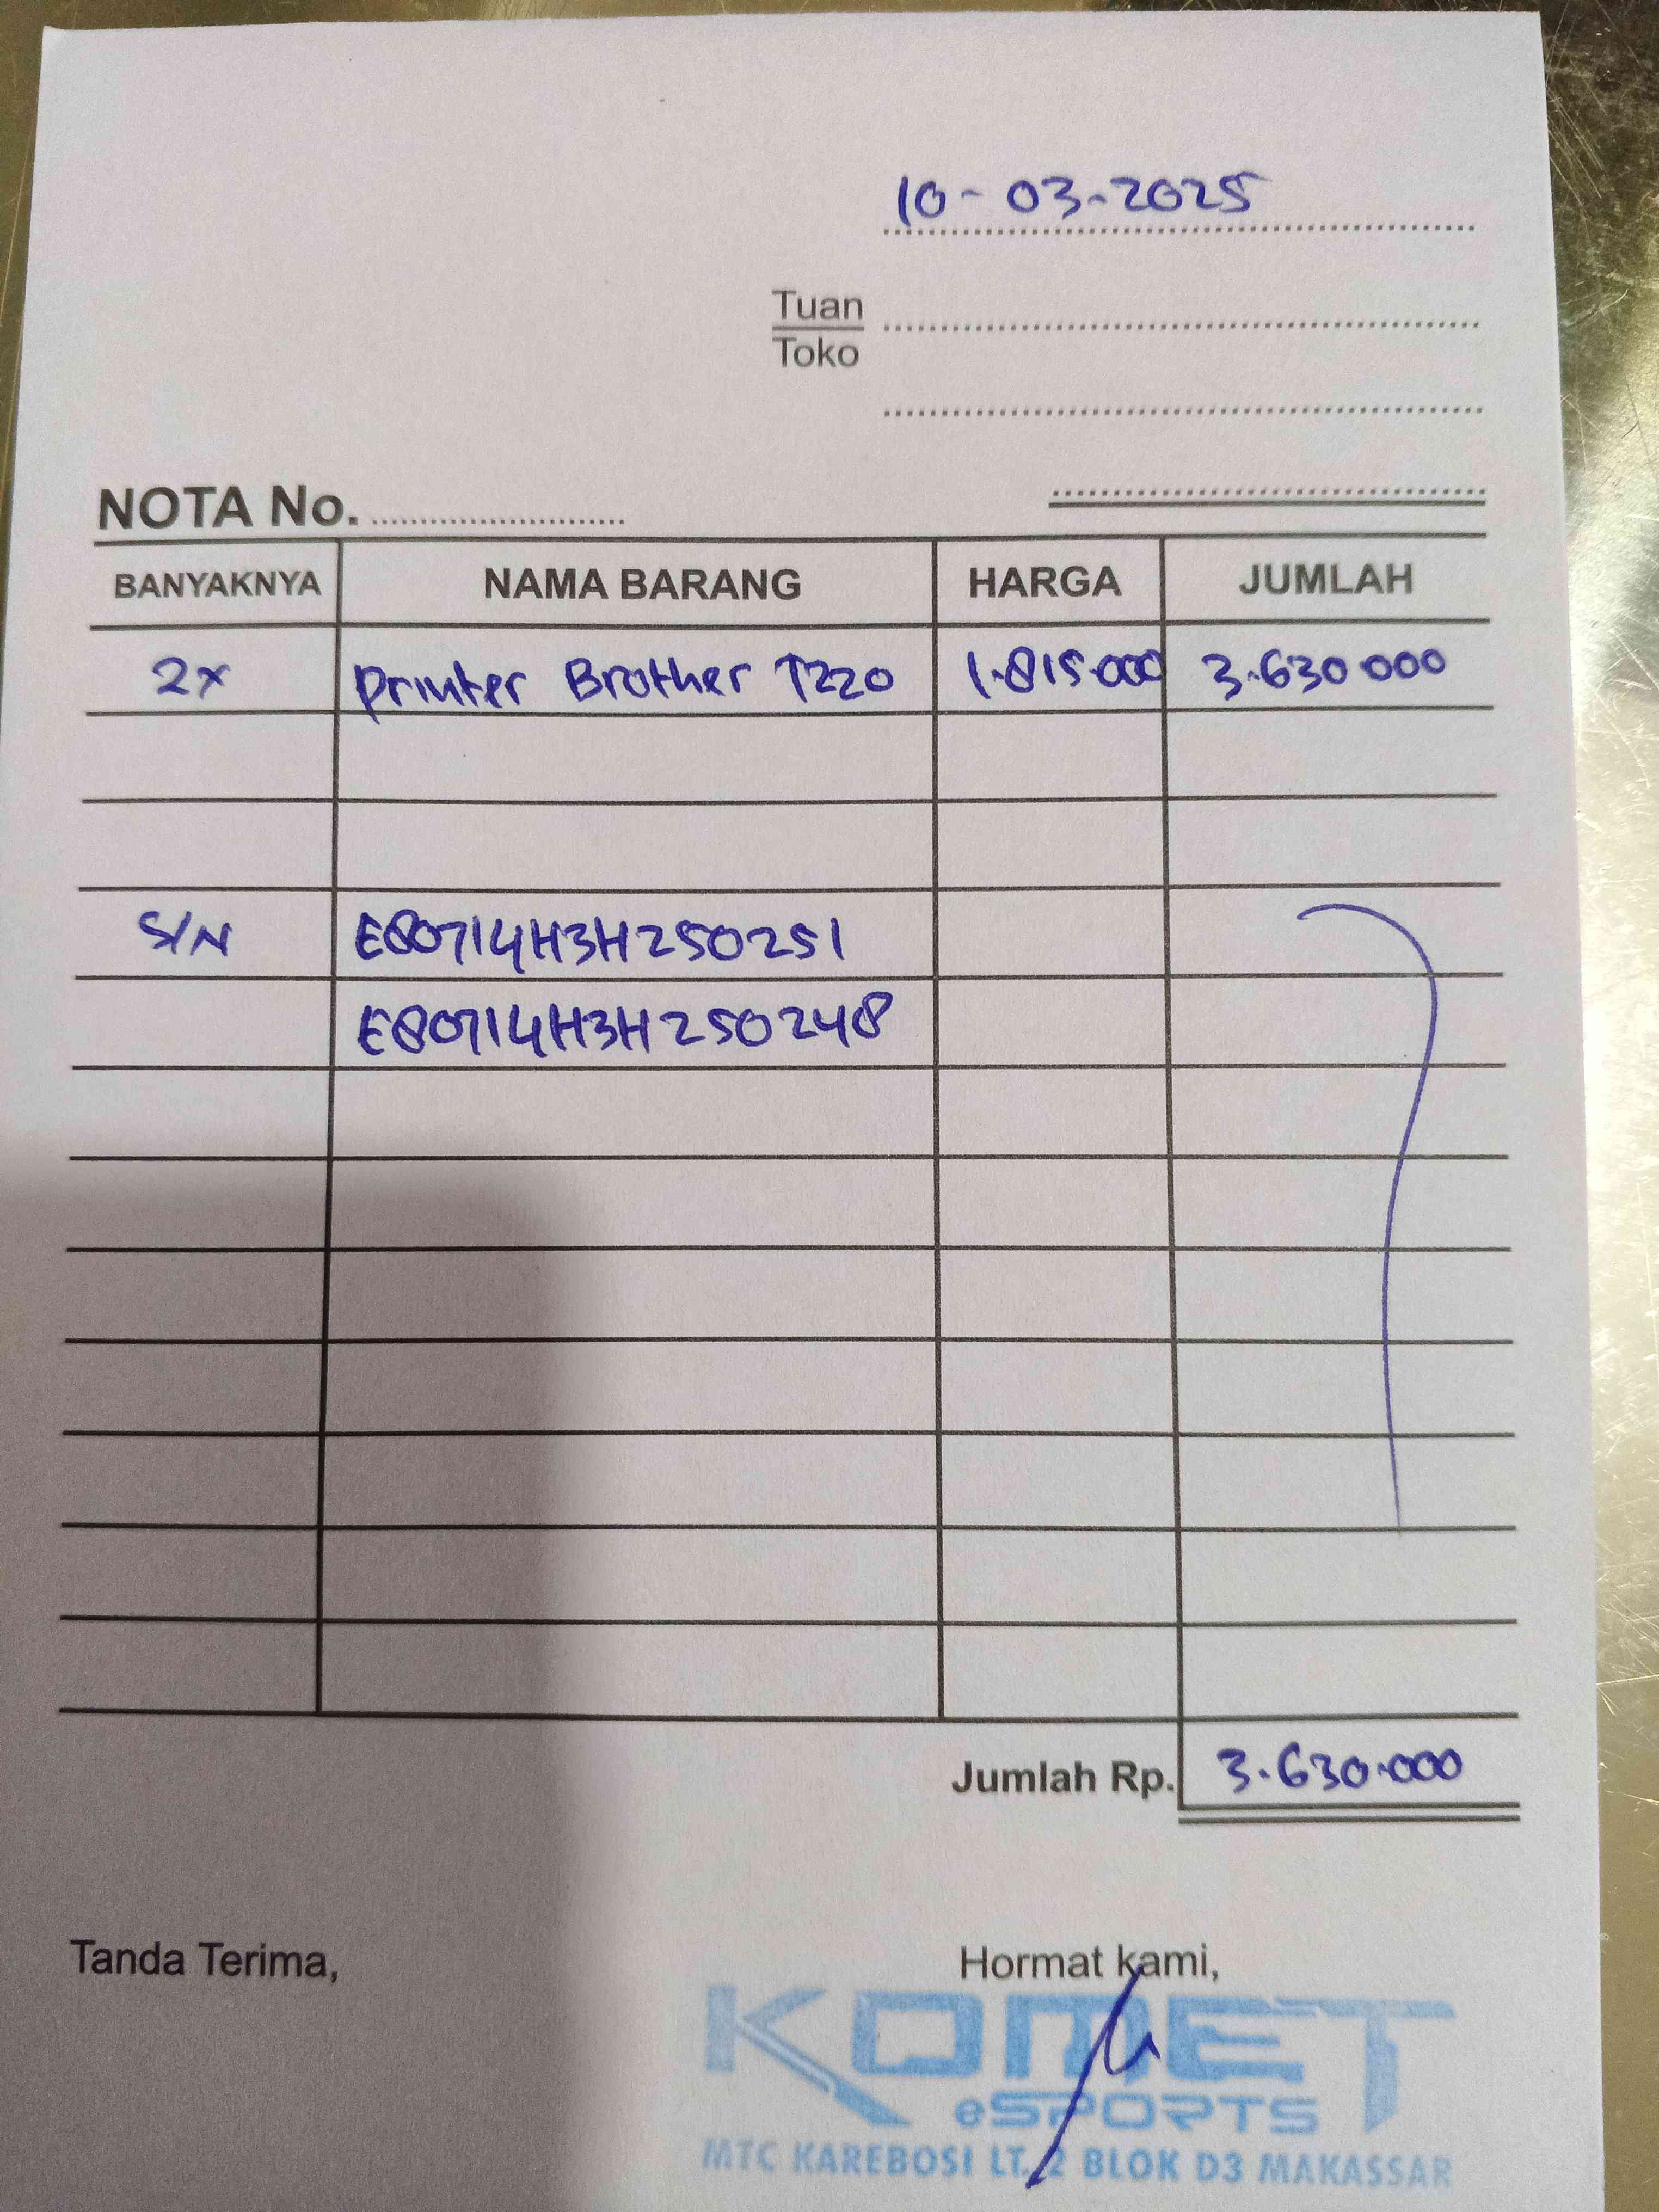 10-03-2025
Tuan
Toko
NOTA No.
BANYAKNYA NAMA BARANG HARGA JUMLAH
2x Printer Brother T220 1.815.000 3.630 000
S/N E80714H3H250251
E80714H3H250248
Jumlah Rp. 3.630.000
Tanda Terima, Hormat kami,
KOMET
eSPORTS
MTC KAREBOSI LT. 2 BLOK D3 MAKASSAR